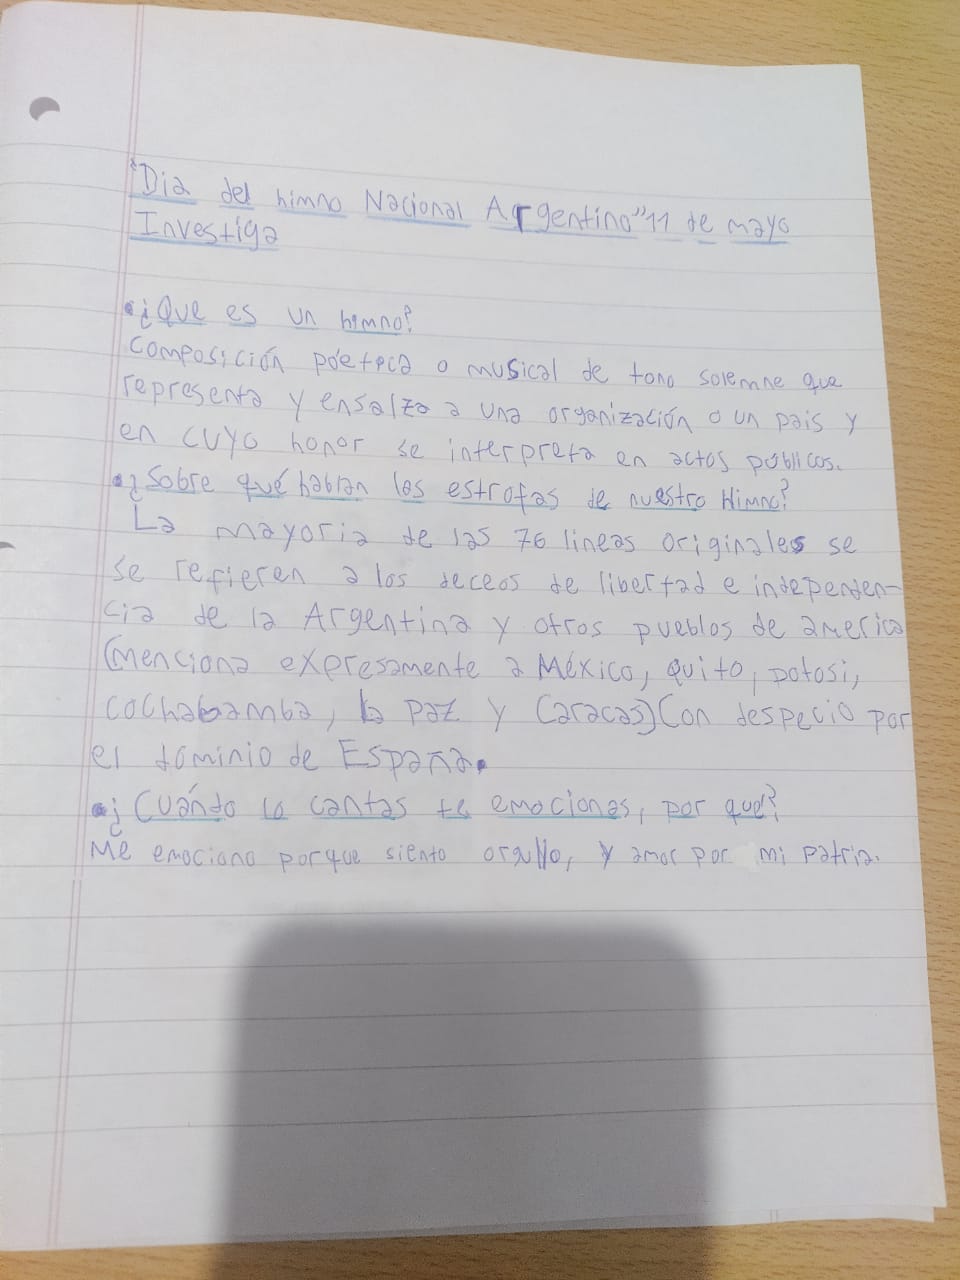 "Dia del himno Nacional Argentino" 11 de mayo
Investiga
• ¿Que es un himno?
Composición póeteca o musical de tono solemne que
representa y ensalza a una organización o un pais y
en cuyo honor se interpreta en actos públicos.
• ¿Sobre qué hablan las estrofas de nuestro Himno?
La mayoria de las 76 lineas originales se
se refieren a los deceos de libertad e independen-
cia de la Argentina y otros pueblos de america
(menciona expresamente a México, quito, potosi,
cochabamba, la paz y Caracas) Con despecio por
el dominio de España.
• ¿Cuándo lo cantas te emocionas, por qué?
Me emociono porque siento orgullo, y amor por mi patria.